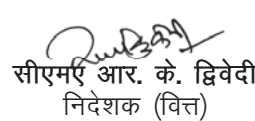 सीएमए आर. के. द्विवेदी
निदेशक (वित्त)